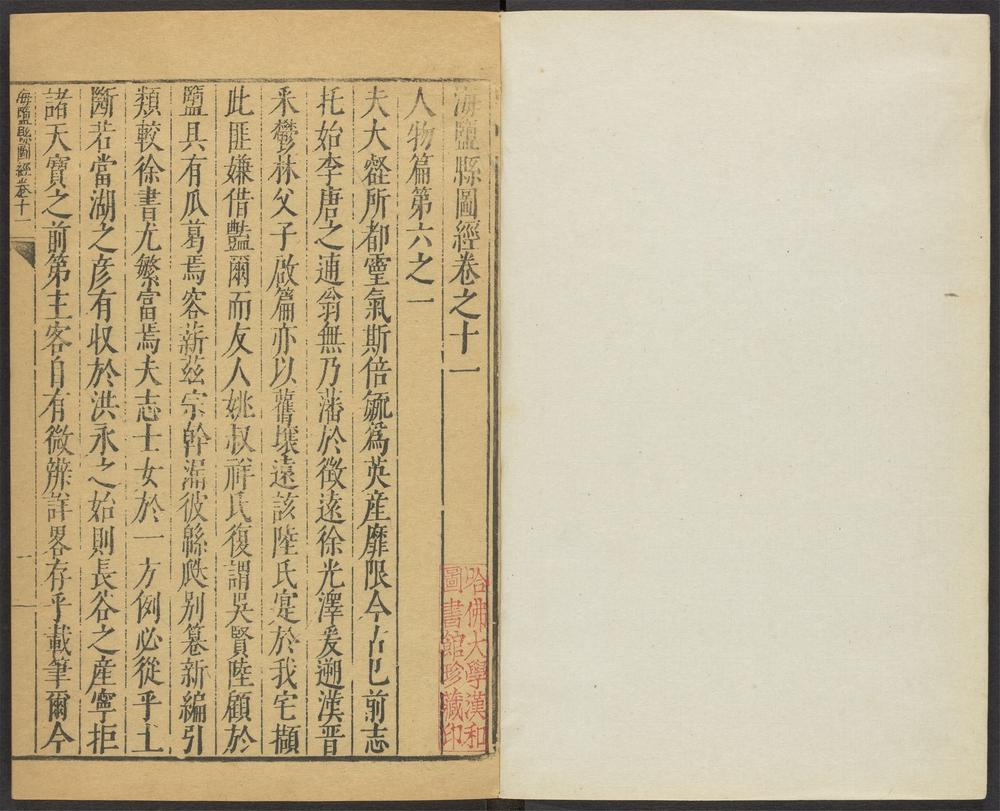 海鹽縣圖經卷之十一
人物篇第六之一
夫大壑所都靈氣斯倍毓為英産靡限今古已前志
托始李唐之逋翁無乃藩於徴遠徐光澤爰遡漢晉
釆鬱林父子啟篇亦以舊壤遠該陸氏寔於我宅擷
此匪嫌借豔爾而友人姚叔祥氏復謂吳賢陸顧於
鹽具有瓜葛焉容薪茲宗幹漏彼緜瓞別纂新編引
類較徐書尤繁富焉夫志士女於一方例必從乎土
斷若當湖之彦有収於洪永之始則長谷之産寧拒
諸天寶之前第主客自有微辨詳畧存乎載筆爾今
海鹽縣圖經卷十一
一
哈佛大學漢和
圖書館珍藏印